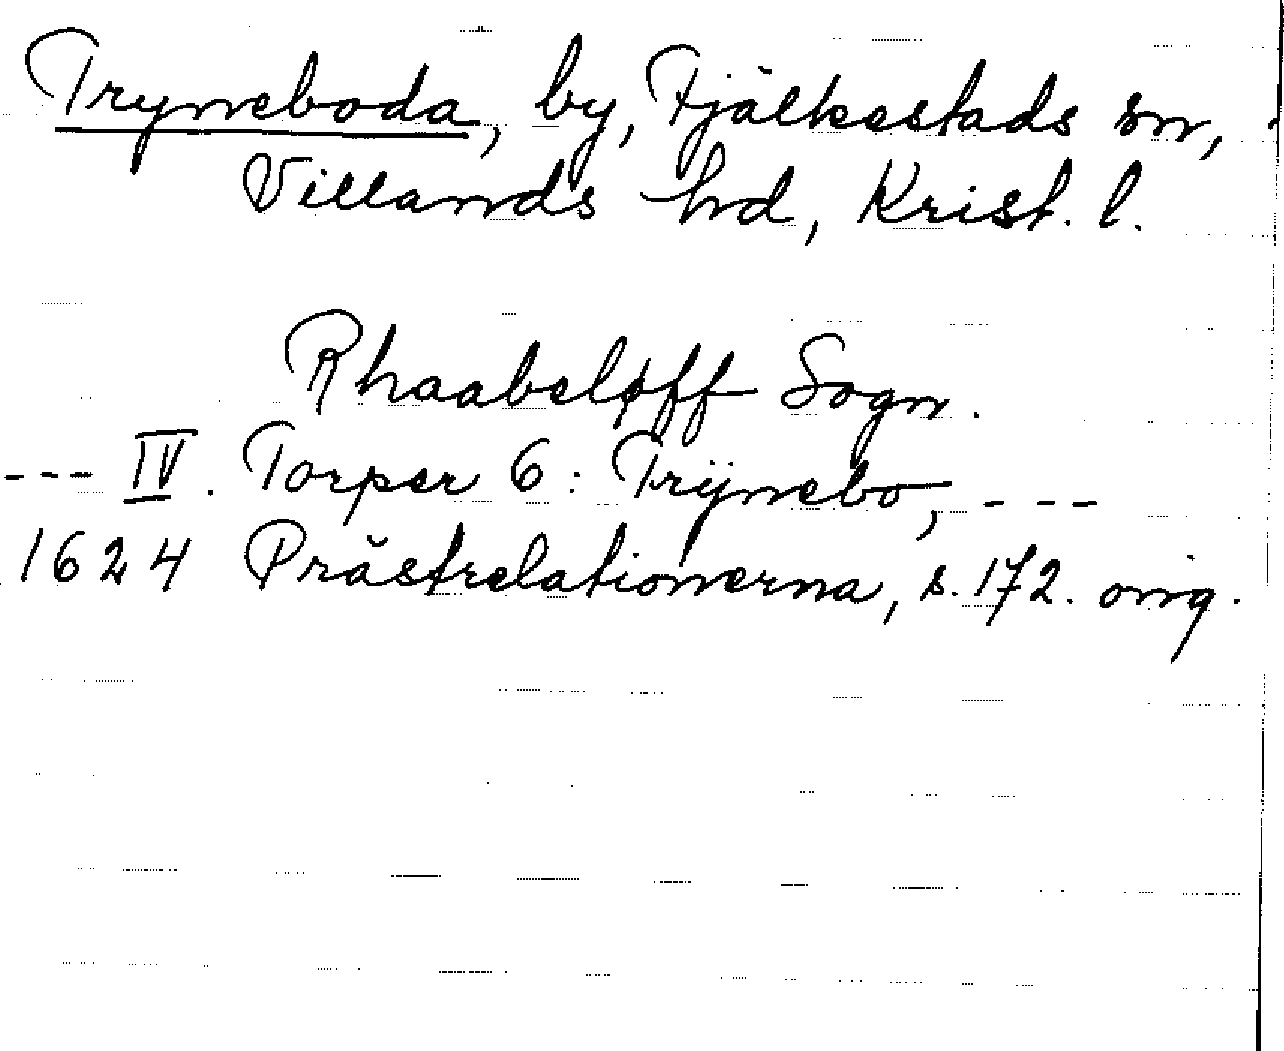 Tryneboda, by, Fjälkestads sn,
Villands hd, Krist. l.
Rhaabeløff Sogn.
--- IV. Torper 6: Trÿnebo, ---
1624 Prästrelationerna, s. 172. orig.